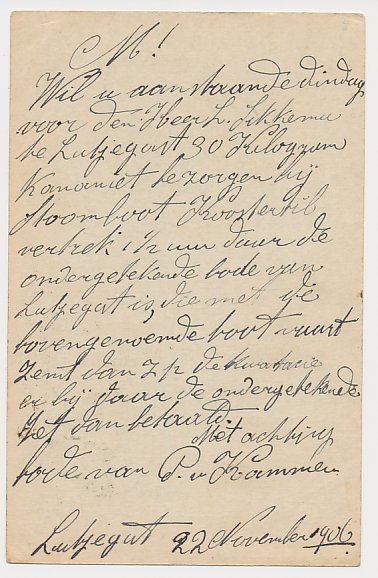 M!
Wil u aanstaande dinsdag
voor den Heer L. Sikkema
te Lutjegast 30 Kilogram
Kanariet bezorgen bij
stoomboot Kootstertil
vertrek 1 ½ uur daar de
ondergetekende bode van
Lutjegast is, die met de
bovengenoemde boot vaart
Zent dan z.p. de kwatancie
er bij daar de ondergetekende
Het dan betaald.
Met achting
bode van P. v Kammen
Lutjegast 22 November 1906